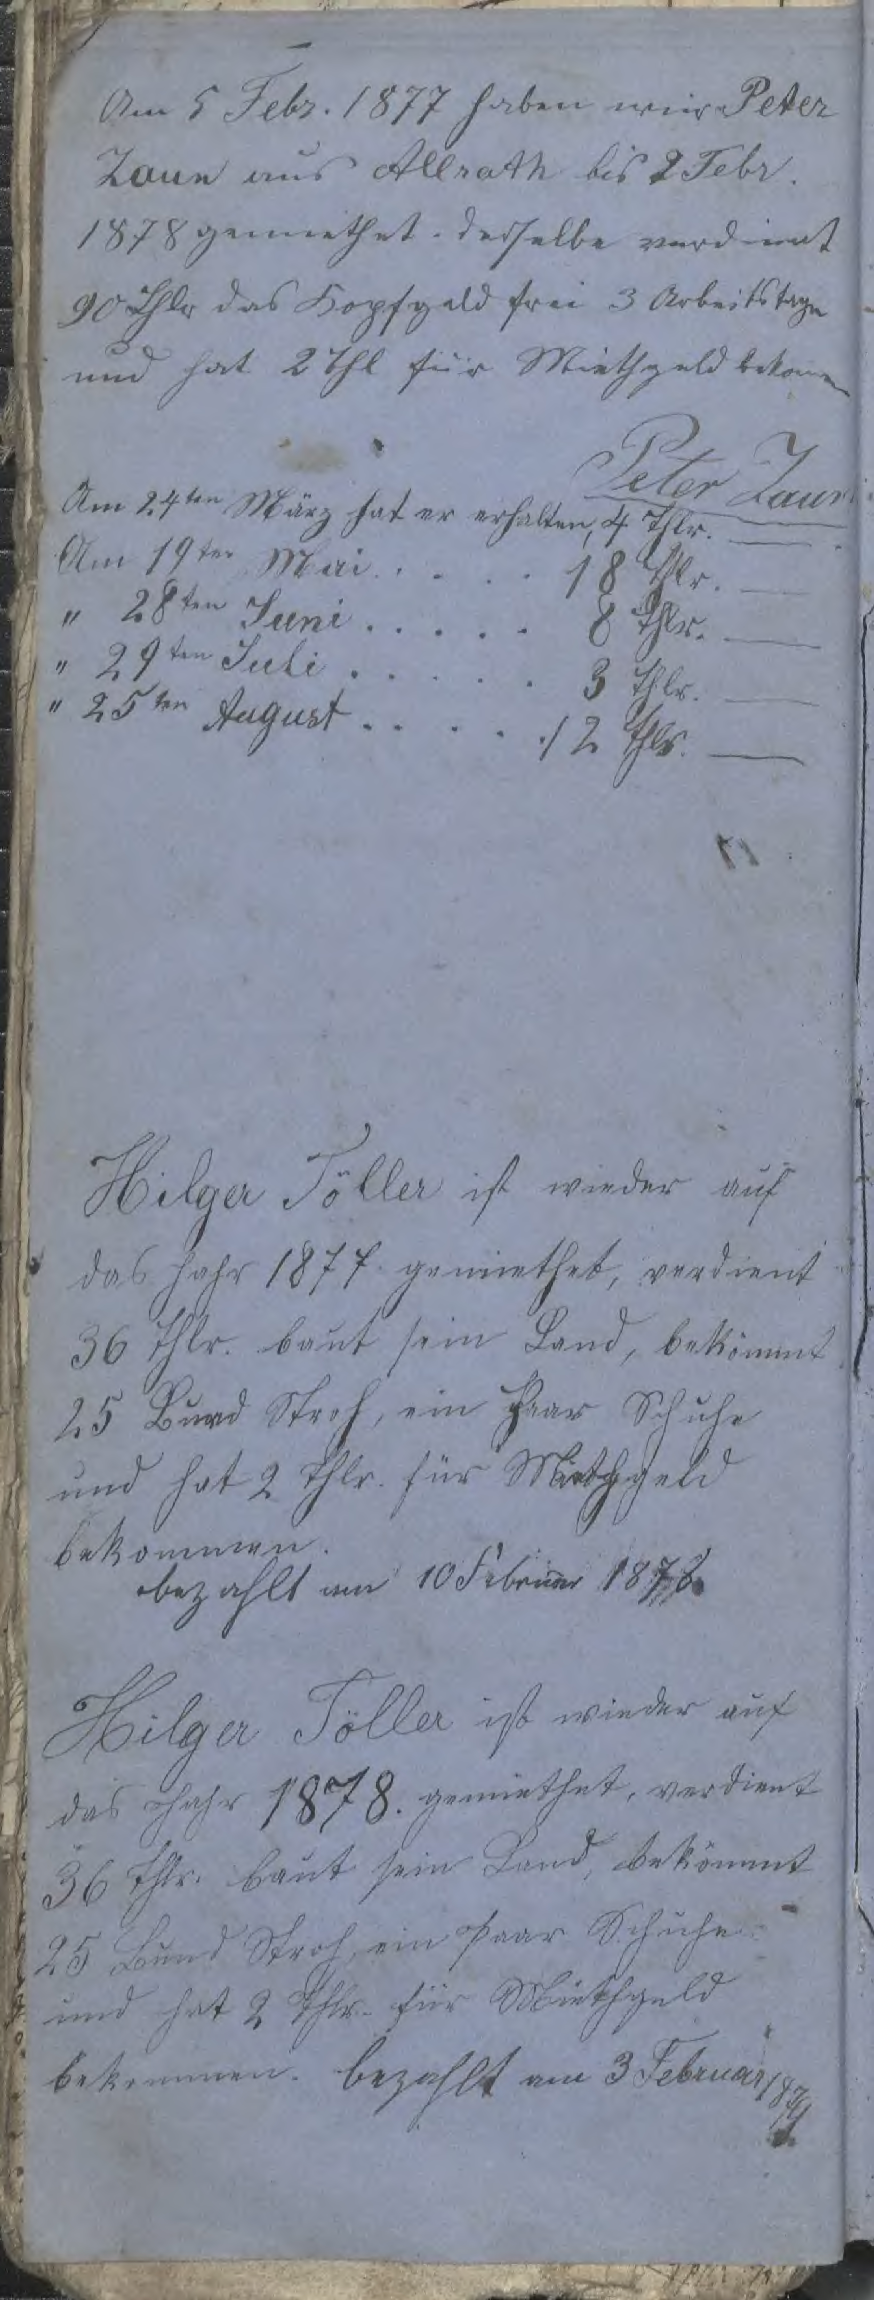 Am 5 Febr. 1877 haben wir Peter
Zaun aus Allrath bis 2 Febr.
1878 gemiethet. derselbe verdient
90 Thlr das Kopfgeld frei 3 Arbeitstage
und hat 2 Thl für Miethgeld bekomen
Peter Zaun
Am 24ten März hat er erhalten, 4 Thlr.
Am 19ten Mai . . . . 18 Thlr.
" 28ten Juni . . . . . 8 Thlr.
" 29ten Juli . . . . . 3 Thlr.
" 25ten August . . . . . 12 Thlr.
Hilger Töller ist wieder auf
das Jahr 1877. gemiethet, verdient
36 Thlr. baut sein Land, bekömmt
25 Bund Stroh, ein Paar Schuhe
und hat 2 Thlr. für Miethgeld
bekommen.
bezahlt am 10 Februar 1878.
Hilger Töller ist wieder auf
das Jahr 1878. gemiethet, verdient
36 Thlr. baut sein Land, bekömmt
25 Bund Stroh, ein Paar Schuhe
und hat 2 Thlr. für Miethgeld
bekommen. bezahlt am 3 Februar 1879